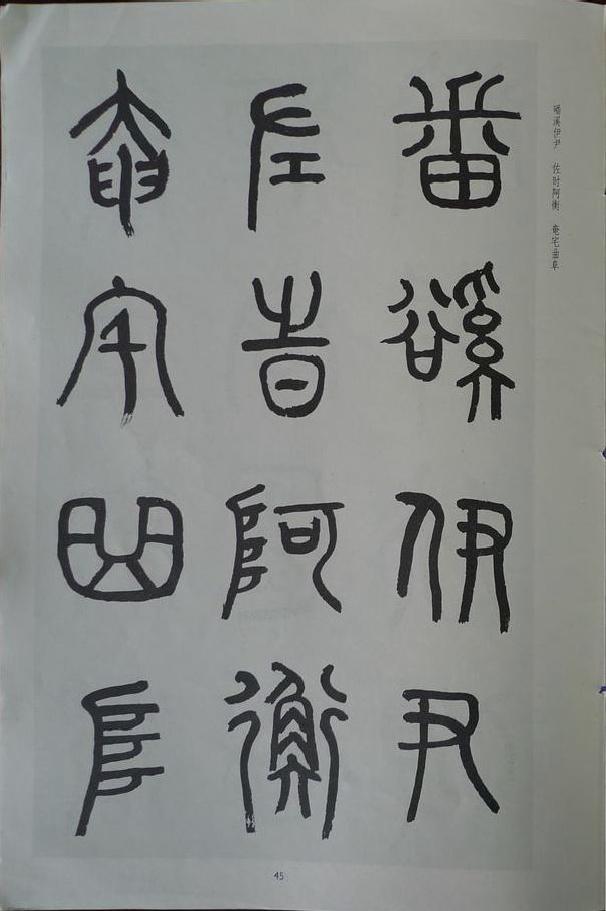 磻溪伊尹 佐时阿衡 奄宅曲阜
番谿伊尹
左旹阿衡
奄宅曲阜
45